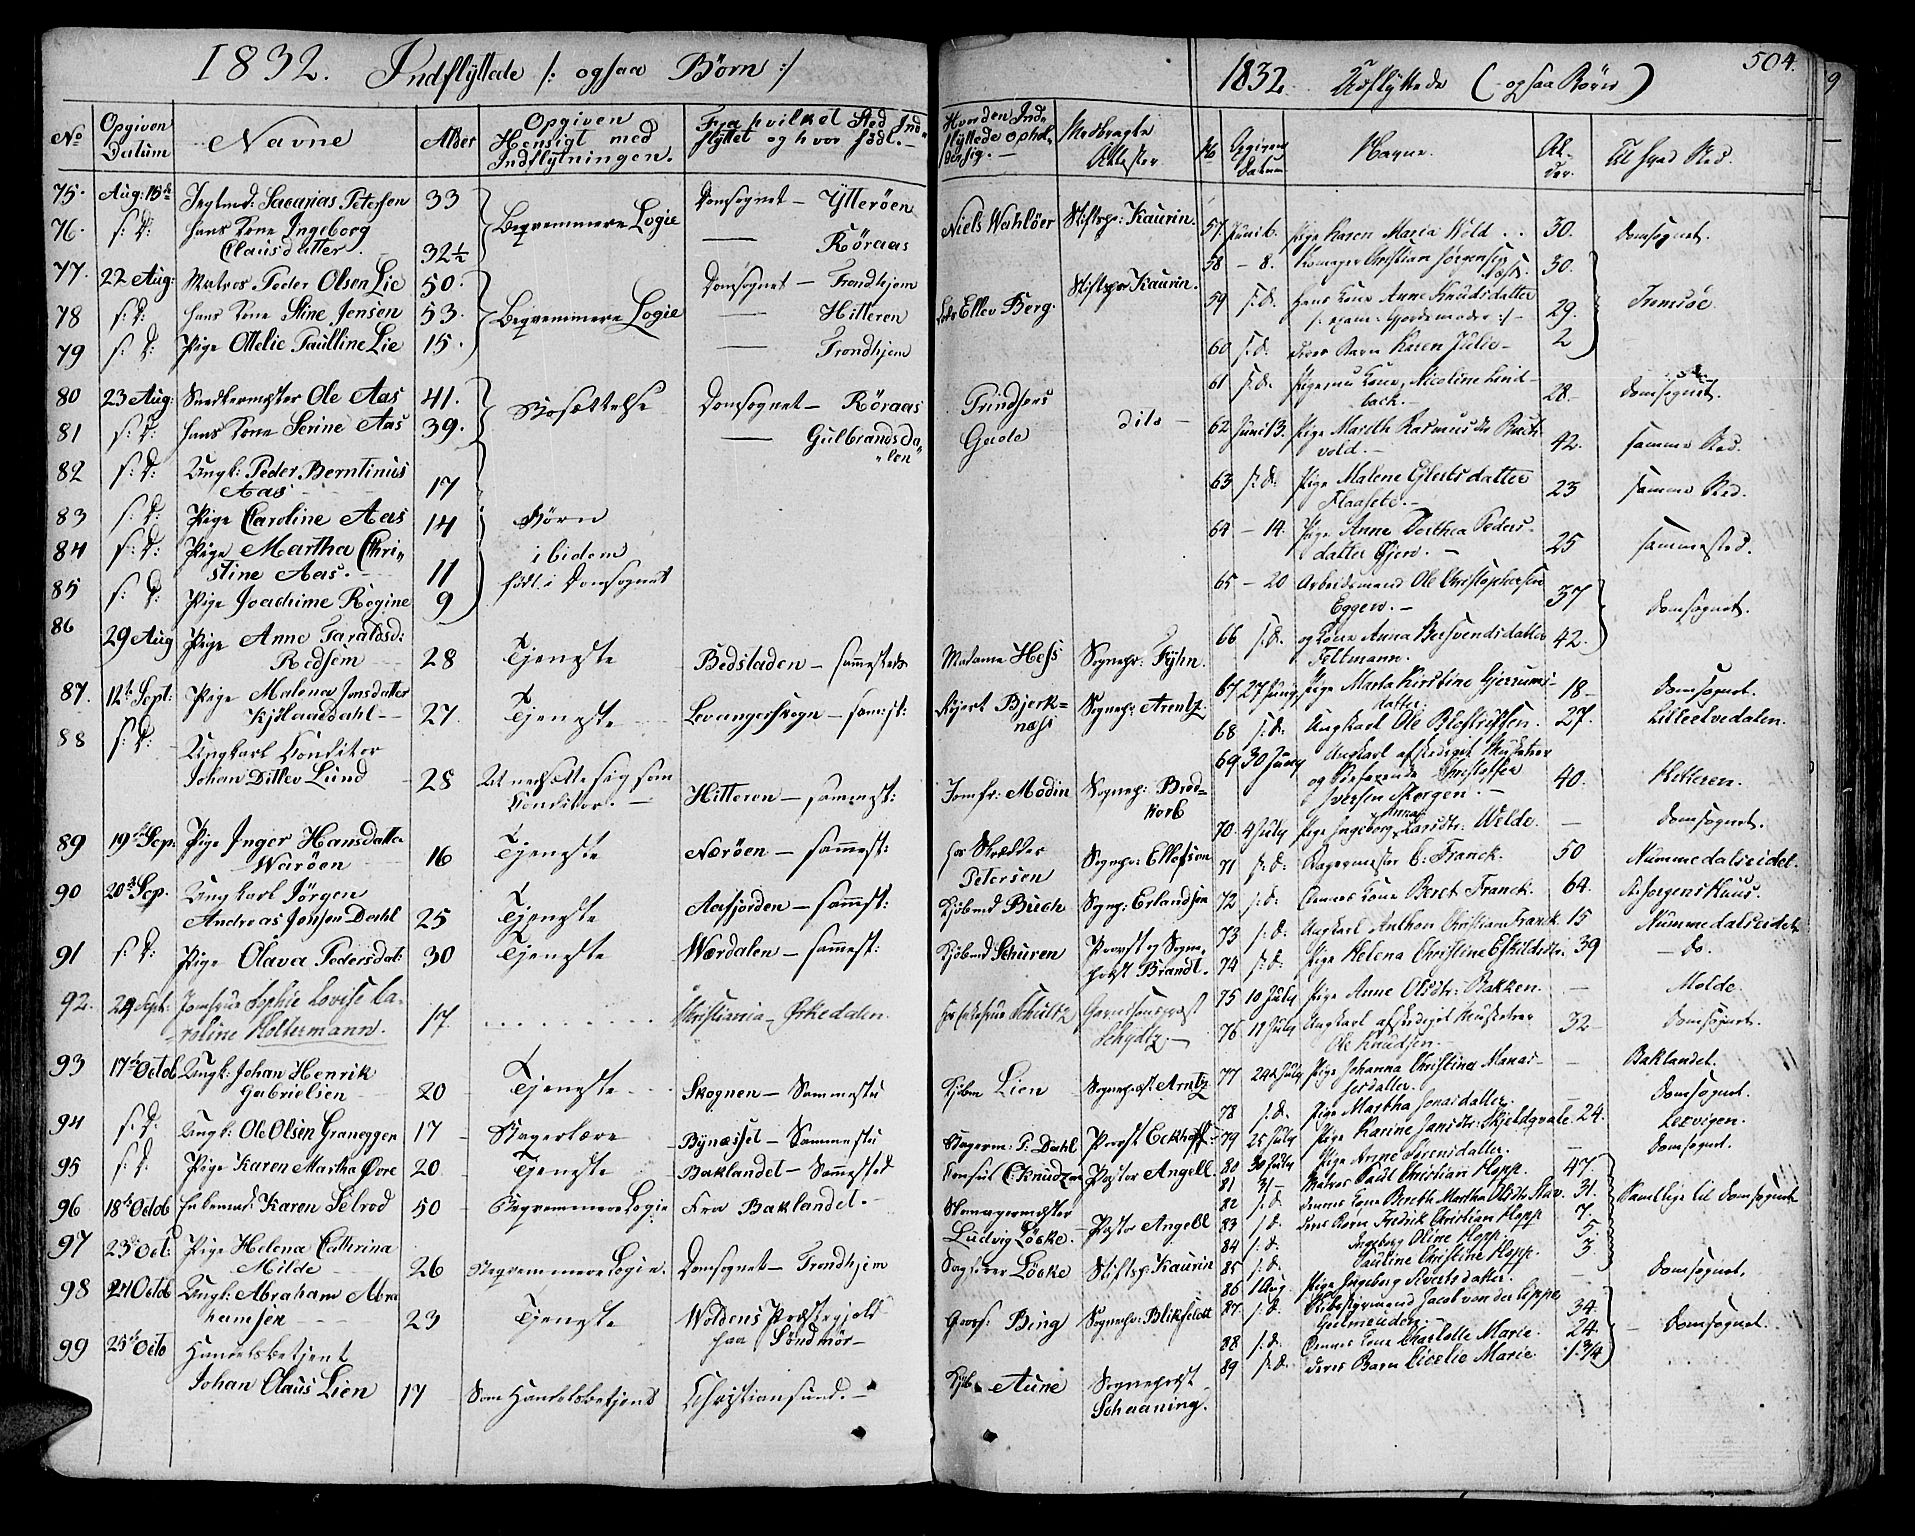 1832. Indflyttede /: ogsaa Børn :/
No Opgiven Datum Navne Alder Opgiven Hensigt med Indflytningen. Fra hvilket Sted Ind- flyttet og hvor født.
Hvor den Ind- flyttede ophol- der sig. Medbragte Attester
75. Aug: 18de Sacarias Petersen 33 Beqvemmere Logie Domsognet — Ytterøen Niels Wahlöer Stiftspr: Kaurin.
76. s: D: hans Kone Ingeborg Clausdatter. 32½ — Röraas
77. 22 Aug: Matros Peder Olsen Lie 50. Beqvemmere Logie Domsognet — Trondhjem Ellev Berg. Stiftspr Kaurin.
78 s: D: hans Kone Stine Jensen 53. — Hitteren
79 s: D: Pige Ottelie Paulline Lie 15. — Trondhjem
80 23 Aug: Snedkermester Ole Aas 41. Bosættelse Domsognet — Röraas Gade dito —
81 s: D: hans Kone Serine Aas 39. — Gulbrandsda- "len"
82 s: D: Ungk: Peder Berntinus Aas 17
83 s: D: Pige Caroline Aas 14 Børn
84 s: D: Pige Martha Chri- stine Aas. 11 ibidem
85 s: D: Pige Joachime Regine 9 født i Domsognet
86 29 Aug Pige Anne Taraldsd: Redsem 28 Tjeneste Bedstaden — sammesteds Madame Hess Sognepr: Fyhn.
87. 12te Sept: Pige Malena Jonsdatter 27. Tjeneste Levangerskogn — samst: Bjerk- næss Sognepr: Arentz.
88 s: D: Ungkarl Konditor Johan Ditlev Lund 28 At nedsætte sig som Konditor. — Hitteren — sammest: Jomfr: Modin Sognepr: Brod- korb
89 19de Sep. Pige Inger Hansdatter Waröen 16 Tjeneste Nærøen — sammest: hos Skrædder Petersen Sognepr: Ellefsen
90 20de Sep. Ungkarl Jörgen Andreas Jonsen Dahl 25 Tjeneste Aafjorden — sammst: Kjöbmd Buch Sognepr: Erlandsen
91 s: D: Pige Olava Pedersdat: 30 Tjeneste Wærdalen — sammest: Kjöbmd Schuren Provst og Sogne- præst Brandt.
92. 24 Sept. Jomfrue Sophie Lovise Ca- roline Holtermann. 17. Christiania — Orkedalen. Schultz Garnisonspræst Schydtz. —
93 17de Octob Ungk: Johan Henrik Gabrielsen 20 Tjeneste Skognen — Sammestd Kjöbm Lien Sognepræst Arntz
94 s: D: Ungk: Ole Olsen Graneggen 17 Bynæsset — Sammestd P. Dahl Provst Eckhoff
95 s: D: Pige Karen Martha Øvre 20 Tjeneste Baklandet — Sammested Consul C: Knudzon Pastor Angell
96 18de Octob Enkemd: Karen Selrod 50 Beqvemmere Logie Fra Baklandet. Skomagermester Ludvig Löcke. Pastor Angell
97 23de Oct: Pige Helena Cathrina Milde 26 Beqvemmere Logie. Domsognet — Trondhjem Löcke Stiftspr: Kaurin
98 24 Octob Ungk: Abraham Abra hamsen 23 Tjeneste Woldens Præstegjeld paa Söndmör — Bing Sognepr: Blikfeldt
99 25de Octo Handelsbetjent Johan Claus Lien 17 Som Handelsbetjent Christiansund. — Kjöb. Aune Sognepræst Schaaning.
504.
1832 Udflyttede (ogsaa Børn)
No Opgiven Datum Navne. Al- der. Til hvad Sted.
57. Juni 6. Pige Karen Maria Wold 30. Domsognet.
58 — 8. Christian Jörgensen 30.
59 s: D. hans Kone Anne Knudsdatter /: exam: Gjordemoder :/ — 29. Tromsöe.
60 s: D. deres Barn Karen Julie — 2
61 s: D. Kone, Nicoline Lind- back. — 28. Domsognet.
62 Juni 13. Pige Mareth Rasmusdtr vold. — 42. samme Sted.
63 s: D. Pige Malene Ejlertsdatter 23 samme Sted.
64 — 14. Pige Anne Dorthea Peders- datter Gjen. — 25 sammested.
65 — 20 Arbeidsmand Ole Christophersen Eggen. — 37 Domsognet.
66 s: D. og Kone Anna Berfvendsdatter Feltmann. 42.
67 27 Juny Pige Marta Kirstine datter. 18 — Domsognet.
68 s: D. Ungkarl Ole 27. Lilleelvedalen.
69 30 Juny Ungkarl afskediget Musketeer og Christoffer Iversen Morgen. — 40. Hitteren.
70. 4 July Pige Ingeborg Anna Larsdtr: Welde. — Domsognet.
71 s: D: Bagermester C: Franck. 50 Nummedalseidet.
72 s: D: Dennes Kone Beret Franck. 64.
73 s: D: Ungkarl Anthon Christian Franck 15 Nummedalseidet
74 s: D: Pige Helena Christine Eskildsdtr. 39 — do.
75 10 July Pige Anne Olsdtr: Bakken. — Molde.
76 11 July Ungkarl afskediget Musketeer Ole Knudsen. — 32 — Domsognet.
77 24de July Pige Johanna Christina Manas- sesdatter. — Baklandet.
78 s: D. Pige Martha Jonasdatter. — Domsognet.
79 25 July Pige Karine Jansdtr: 24. Lexvigen.
80 30 July Pige Anne Sörensdatter. — Domsognet.
81 31 — Matros Paul Christian Hopp. 47.
82 s: D. dennes Kone Bereth Martha Olsdtr 31. Samtlige til Domsognet
83 s: D. deres Børn Fredrik Christian Hopp 7.
84 s: D. Ingeborg Oline Hopp. 5.
85 s: D. Pauline Christine Hopp. 3
86 1 Aug Pige Ingeborg Sivertsdatter. — Domsognet.
87. s: D. Jacob von der Lippe 34.
88 s: D. Dennes Kone Charlotte Marie. 24 — Domsognet.
89 s: D. deres Barn Cicelie Marie. 1 3/4